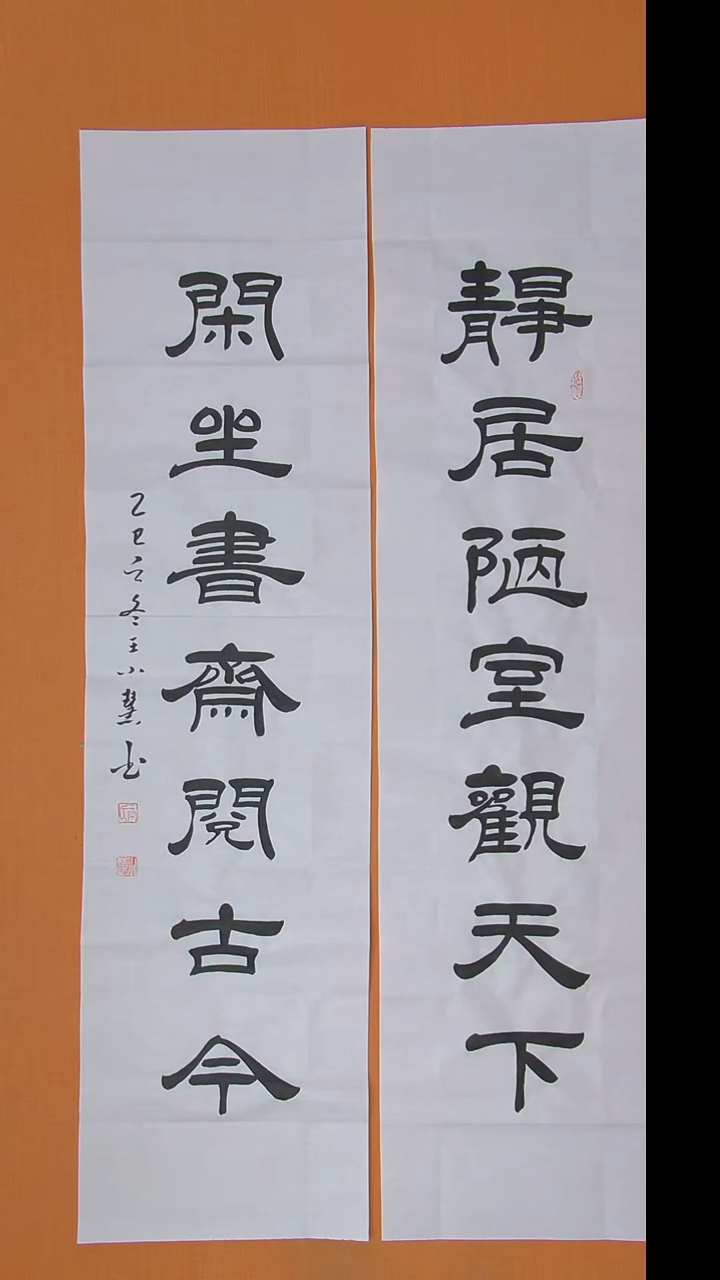 靜居陋室觀天下
閑坐書齋閱古今
乙巳之冬王小慧书